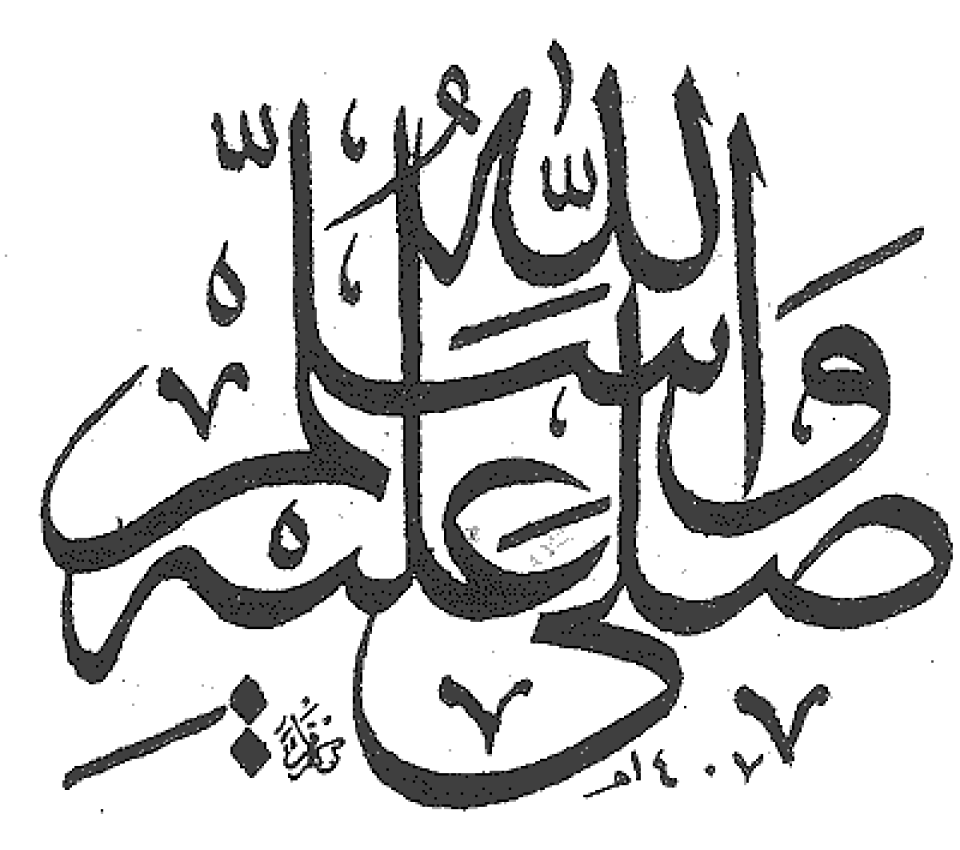 صَلَّى اللّٰهُ عَلَيْهِ وَسَلَّمْ
١٤٠٧